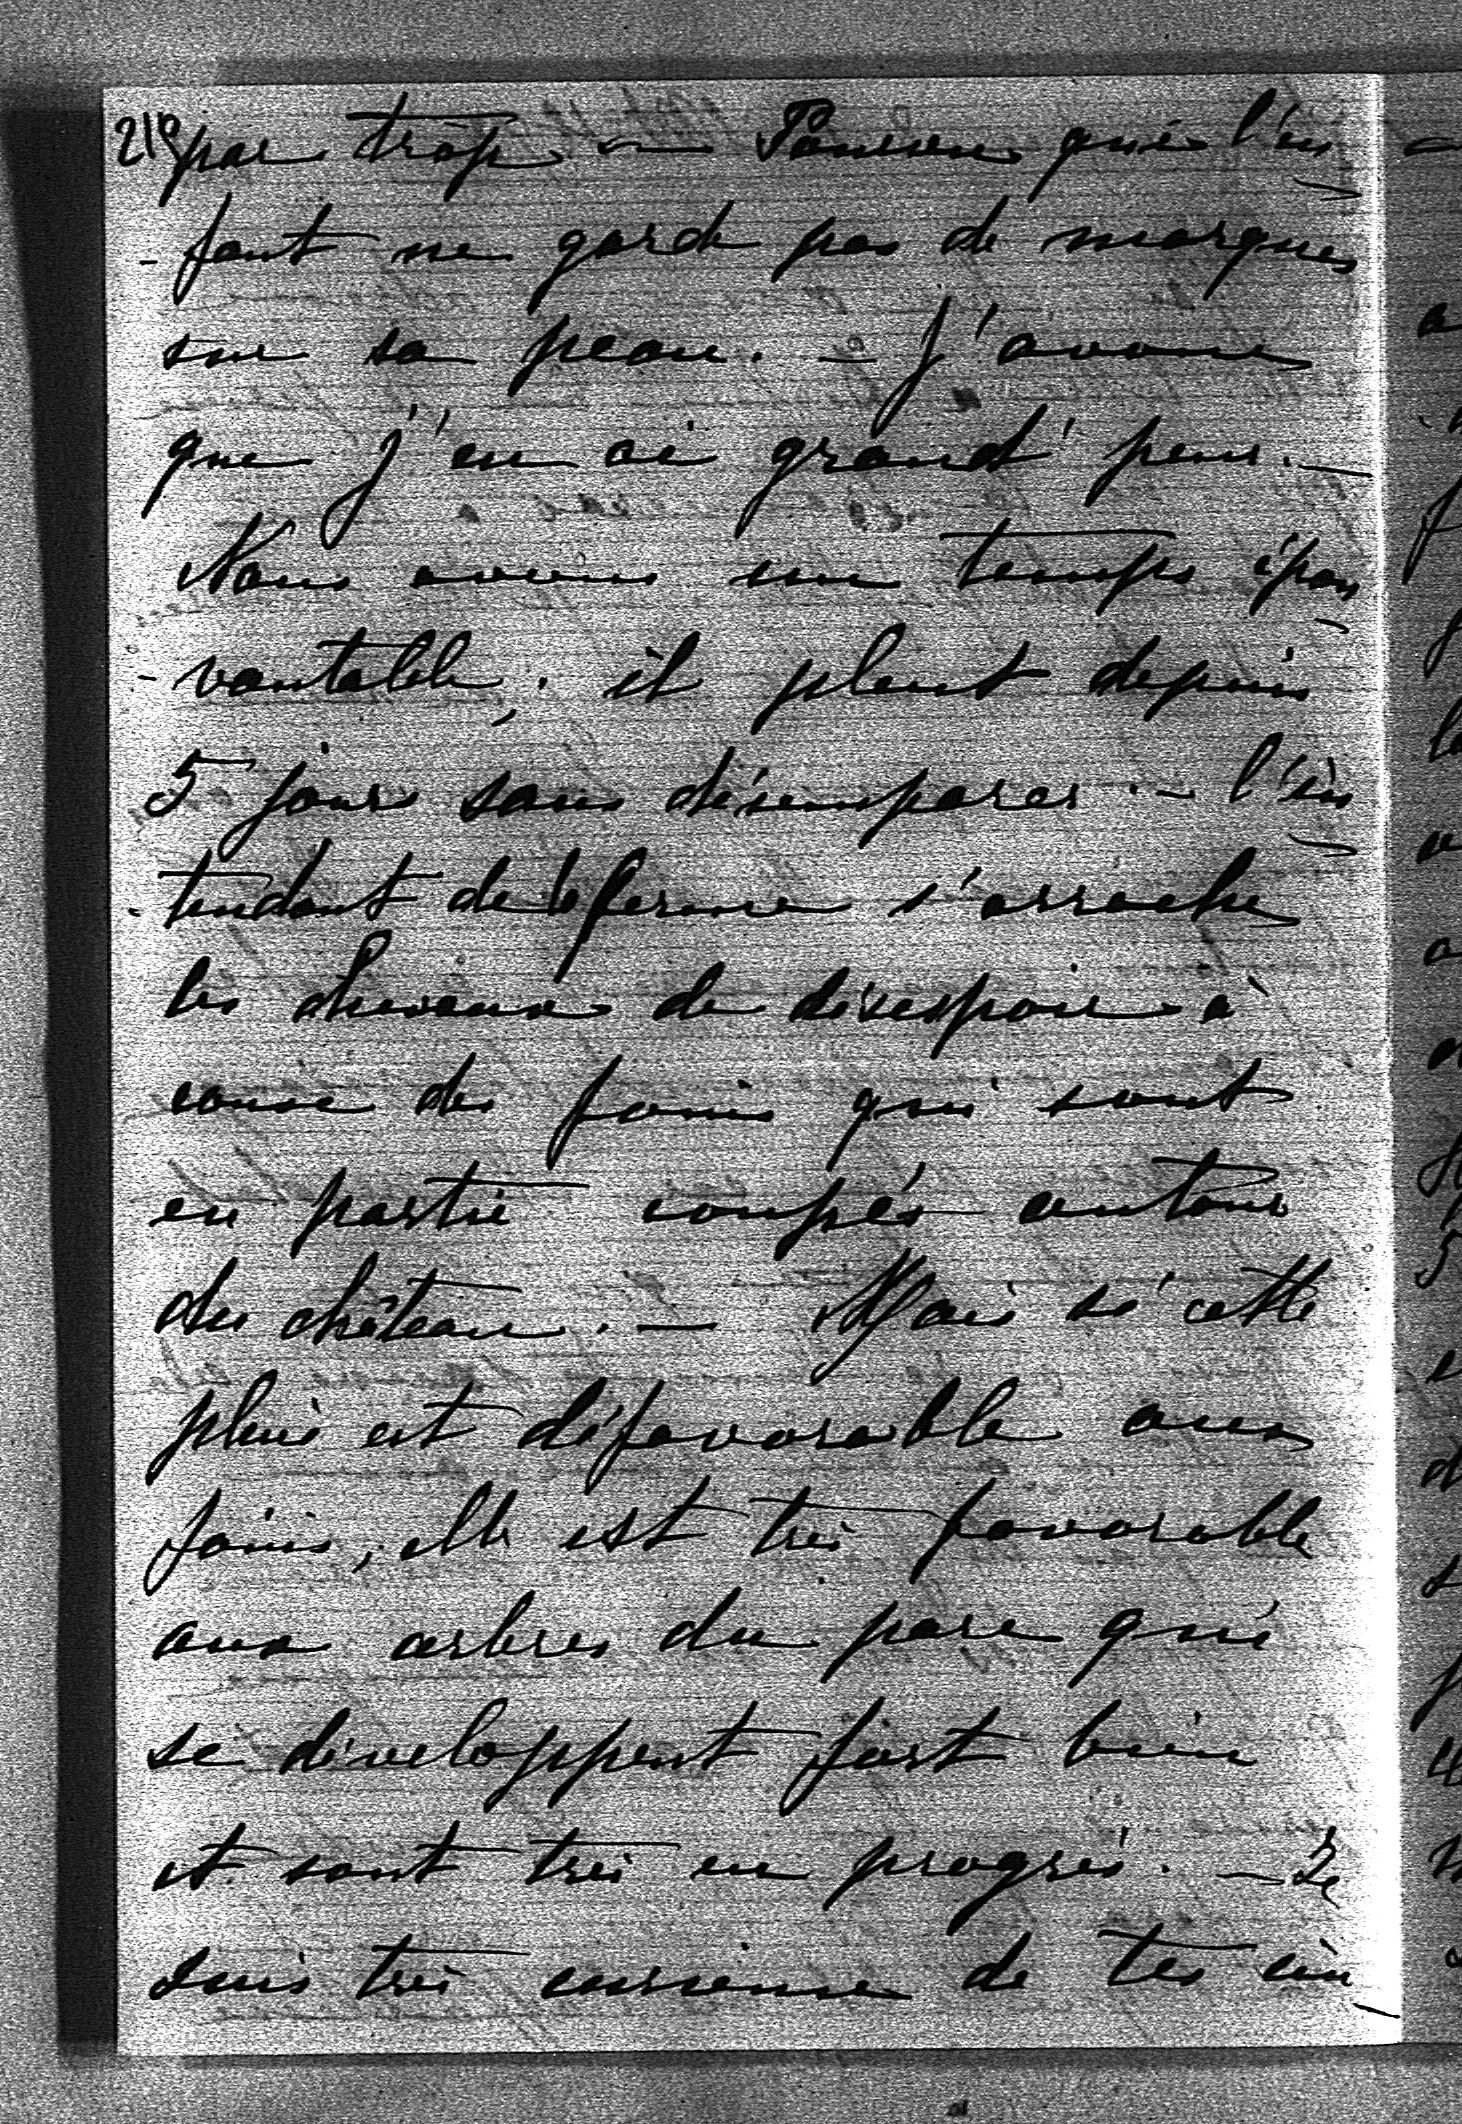 par trop — Pourvu que l'en
- fant ne garde pas de marques
sur sa peau. — J'avoue
que j'en ai grand' peur. —
Nous avons un temps épou
- vantable, il pleut depuis
5 jours sans désemparer. — l'in
- tendant de la ferme s'arrache
les cheveux de désespoir à
cause des foins qui sont
en partie coupés autour
du château. — Mais si cette
pluie est défavorable aux
foins, elle est très favorable
aux arbres du parc qui
se développent fort bien
et sont très en progrès. — Je
suis très curieuse de tes